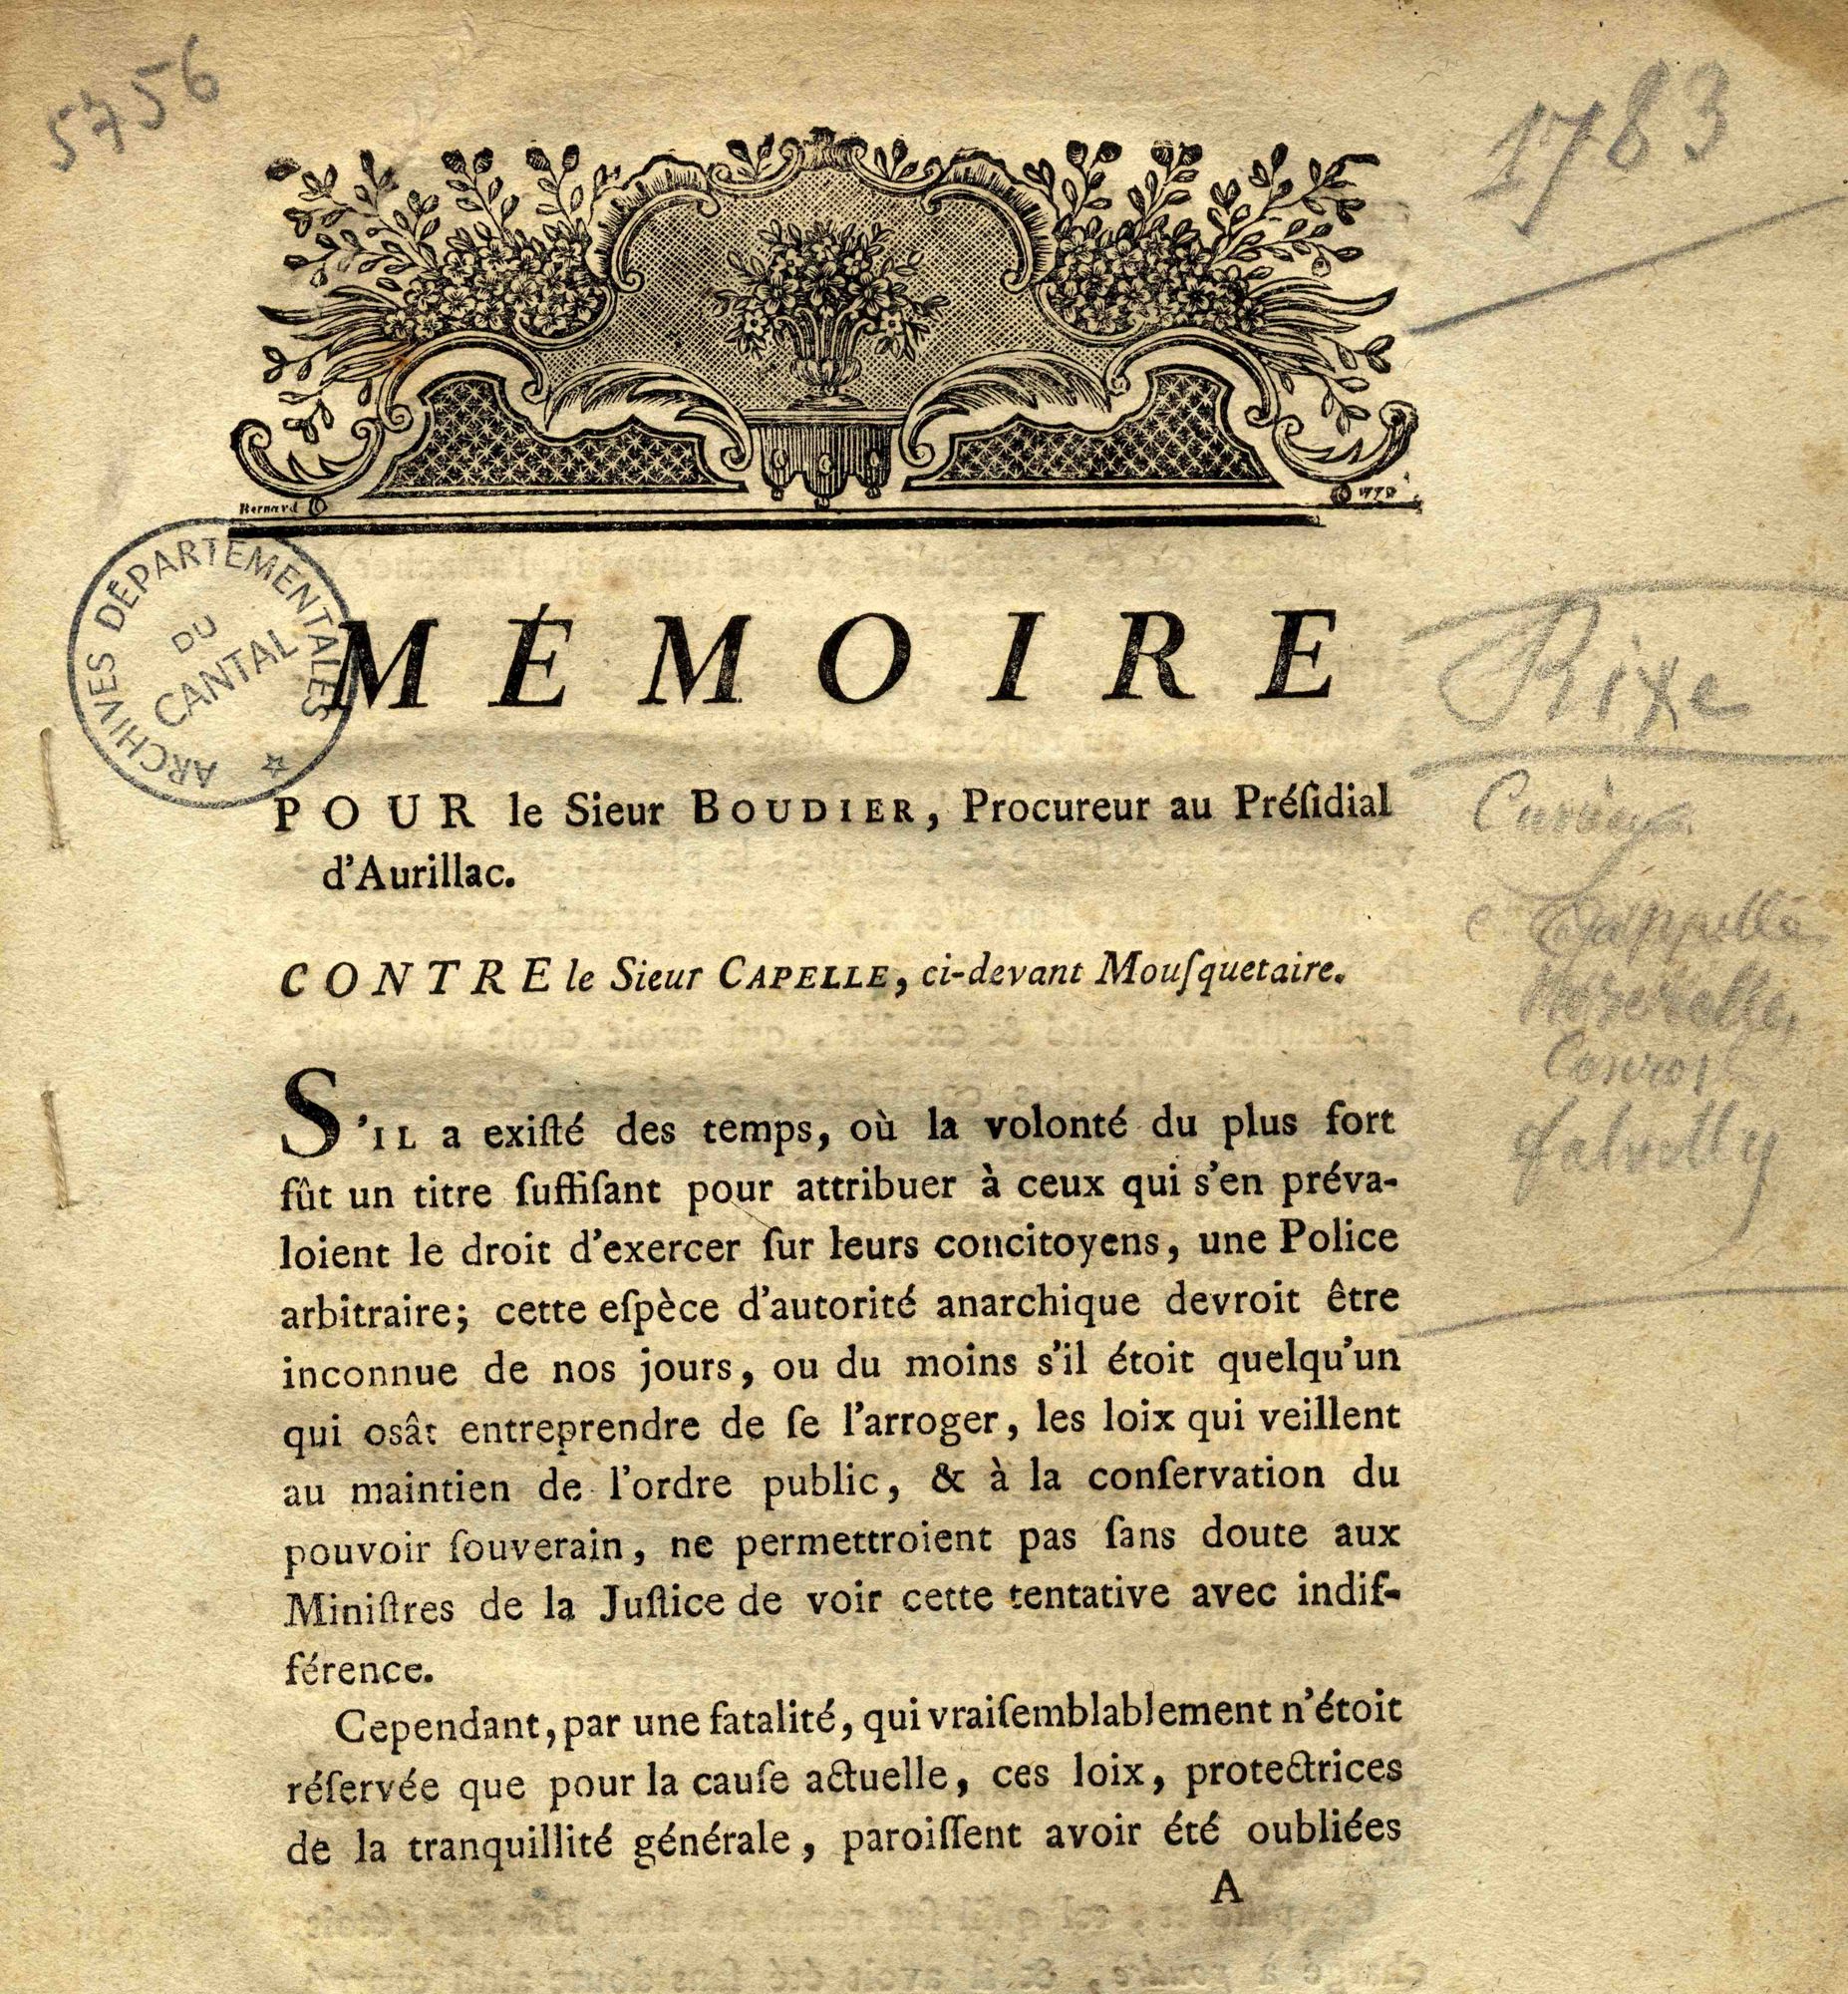 5756
1783
Bernard
ARCHIVES DÉPARTEMENTALES
DU
CANTAL
MÉMOIRE
Rixe
POUR le Sieur BOUDIER, Procureur au Préſidial
d'Aurillac.
CONTRE le Sieur CAPELLE, ci-devant Mouſquetaire.
S'IL a exiſté des temps, où la volonté du plus fort
fût un titre ſuffiſant pour attribuer à ceux qui s'en préva-
loient le droit d'exercer ſur leurs concitoyens, une Police
arbitraire; cette eſpèce d'autorité anarchique devroit être
inconnue de nos jours, ou du moins s'il étoit quelqu'un
qui osât entreprendre de ſe l'arroger, les loix qui veillent
au maintien de l'ordre public, & à la conſervation du
pouvoir ſouverain, ne permettroient pas ſans doute aux
Miniſtres de la Juſtice de voir cette tentative avec indif-
férence.
Cependant, par une fatalité, qui vraiſemblablement n'étoit
réſervée que pour la cauſe actuelle, ces loix, protectrices
de la tranquillité générale, paroiſſent avoir été oubliées
A